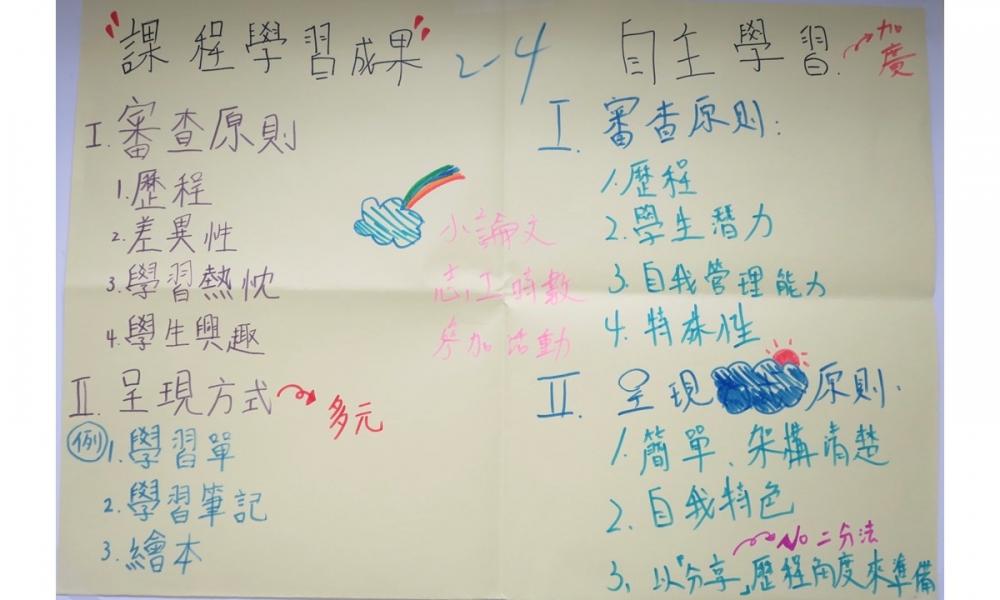 "課程學習成果"
2-4
I. 審查原則
1. 歷程
2. 差異性
3. 學習熱忱
4. 學生興趣
II. 呈現方式 多元
例 1. 學習單
2. 學習筆記
3. 繪本
小論文
志工時數
參加活動
自主學習. 加廣
I. 審查原則:
1. 歷程
2. 學生潛力
3. 自我管理能力
4. 特殊性
II. 呈現 原則:
1. 簡單、架構清楚
2. 自我特色
No 二分法
3. 以「分享」歷程角度來準備